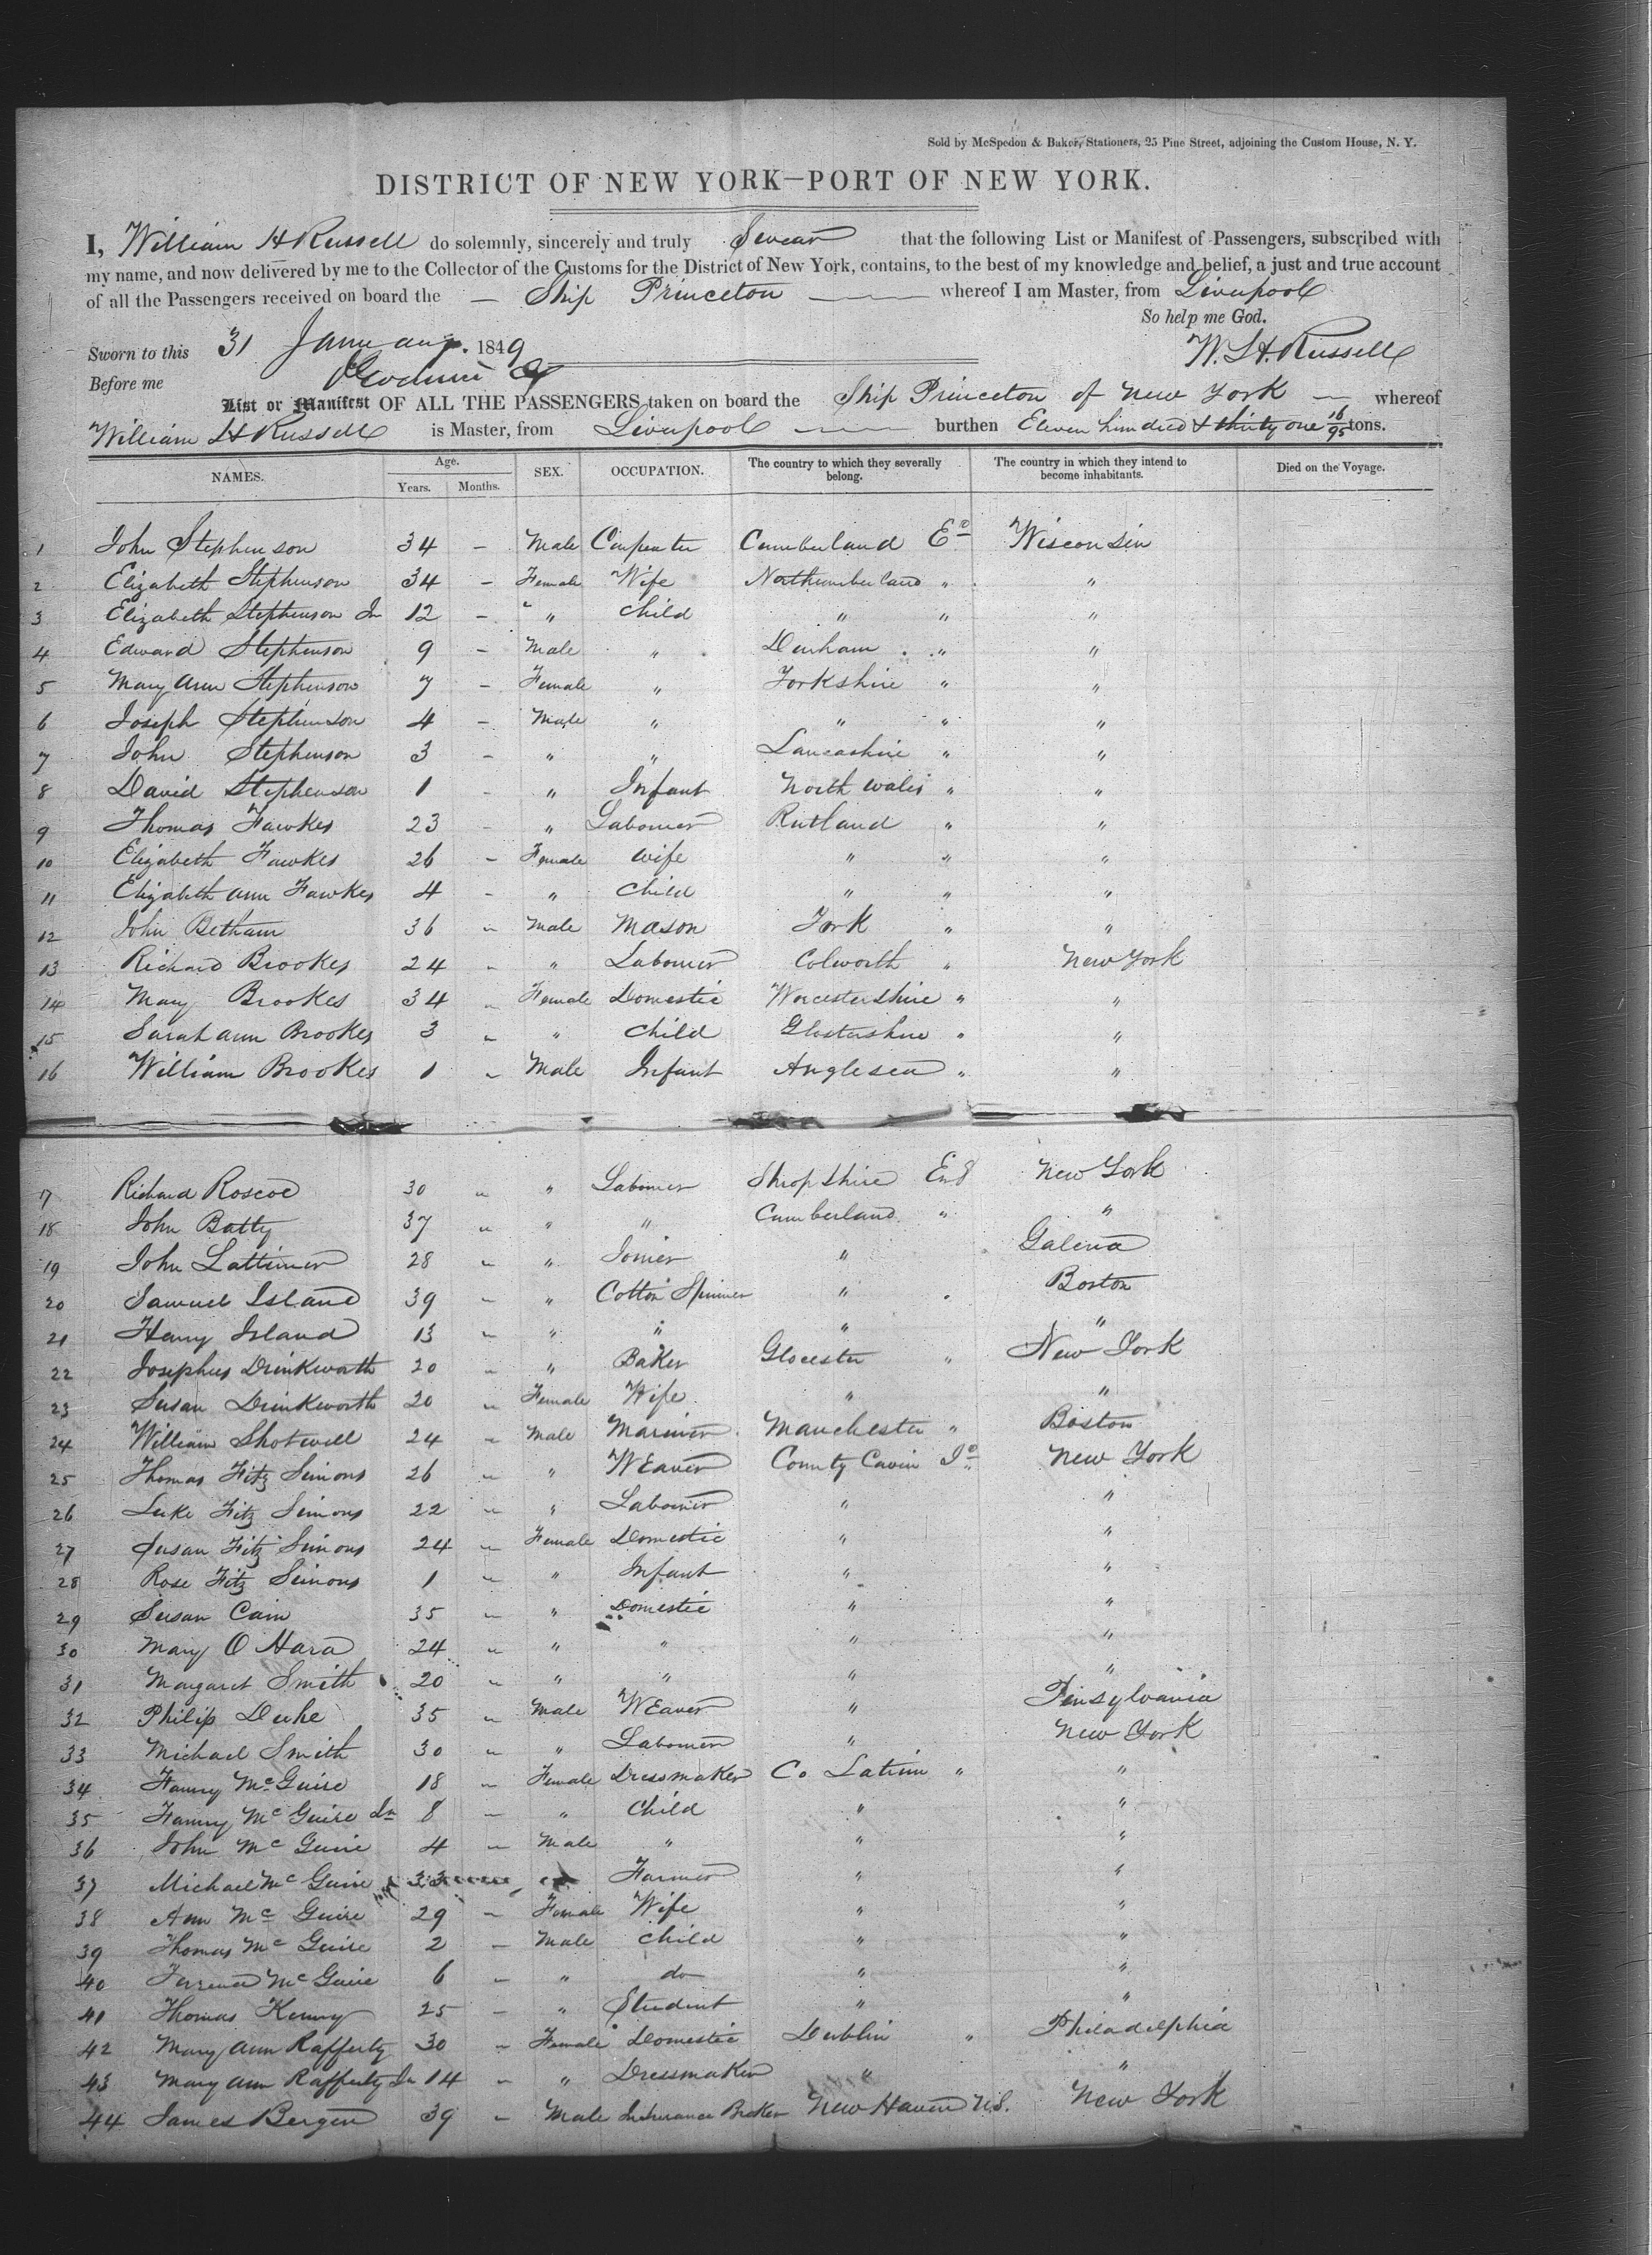 Sold by McSpedon & Baker, Stationers, 25 Pine Street, adjoining the Custom House, N. Y.
DISTRICT OF NEW YORK—PORT OF NEW YORK.
I, William H Russell do solemnly, sincerely and truly Swear that the following List or Manifest of Passengers, subscribed with
my name, and now delivered by me to the Collector of the Customs for the District of New York, contains, to the best of my knowledge and belief, a just and true account
of all the Passengers received on board the — Ship Princeton — whereof I am Master, from Liverpool
So help me God.
Sworn to this 31 January. 1849 W. H. Russell
Before me
List or Manifest OF ALL THE PASSENGERS taken on board the Ship Princeton of New York — whereof
William H Russell is Master, from Liverpool — burthen Eleven hundred & thirty one 16/95 tons.
NAMES. Age. Years. Months. SEX. OCCUPATION. The country to which they severally belong. The country in which they intend to become inhabitants. Died on the Voyage.
1 John Stephenson 34 - Male Carpenter Cumberland E Wisconsin
2 Elizabeth Stephenson 34 - Female Wife Northumberland " "
3 Elizabeth Stephenson Jn 12 - " Child " " "
4 Edward Stephenson 9 - Male " Durham " "
5 Mary Ann Stephenson 7 - Female " Yorkshire " "
6 Joseph Stephenson 4 - Male " " " "
7 John Stephenson 3 - " " Lancashire " "
8 David Stephenson 1 - " Infant North Wales " "
9 Thomas Fawkes 23 - " Labourer Rutland " "
10 Elizabeth Fawkes 26 - Female Wife " " "
11 Elizabeth Ann Fawkes 4 - " Child " " "
12 John Betham 36 - Male Mason York " "
13 Richard Brookes 24 - " Labourer Colworth " New York
14 Mary Brookes 34 - Female Domestic Worcestershire " "
15 Sarah Ann Brookes 3 - " Child Glostershire " "
16 William Brookes 1 - Male Infant Anglesea " "
17 Richard Roscoe 30 - " Labourer Shropshire Eng New York
18 John Batty 37 - " " Cumberland " "
19 John Lattimer 28 - " Joiner " Galena
20 Samuel Island 39 - " Cotton Spinner " Boston
21 Henry Island 13 - " " " "
22 Josephus Drinkworth 20 - " Baker Glocester " New York
23 Susan Drinkworth 20 - Female Wife " "
24 William Shotwell 24 - Male Mariner Manchester " Boston
25 Thomas Fitz Simons 26 - " Weaver County Cavin I New York
26 Luke Fitz Simons 22 - " Labourer " "
27 Susan Fitz Simons 24 - Female Domestic " "
28 Rose Fitz Simons 1 - " Infant " "
29 Susan Cain 35 - " Domestic " "
30 Mary O Hara 24 - " " " "
31 Margaret Smith 20 - " " " "
32 Philip Duke 35 - Male Weaver " Pinsylvania
33 Michael Smith 30 - " Labourer " New York
34 Fanny McGuire 18 - Female Dressmaker Co Latrim " "
35 Fanny McGuire Jn 8 - " Child " "
36 John McGuire 4 - Male " " "
37 Michael McGuire 33 Farmer " "
38 Ann McGuire 29 - Female Wife " "
39 Thomas McGuire 2 - Male Child " "
40 Terrence McGuire 6 - " do " "
41 Thomas Kenny 25 - " Student " "
42 Mary Ann Rafferty 30 - Female Domestic Dublin " Philadelphia
43 Mary Ann Rafferty Jn 14 - " Dressmaker " "
44 James Bergen 39 - Male Insurance Broker New Haven U.S. New York